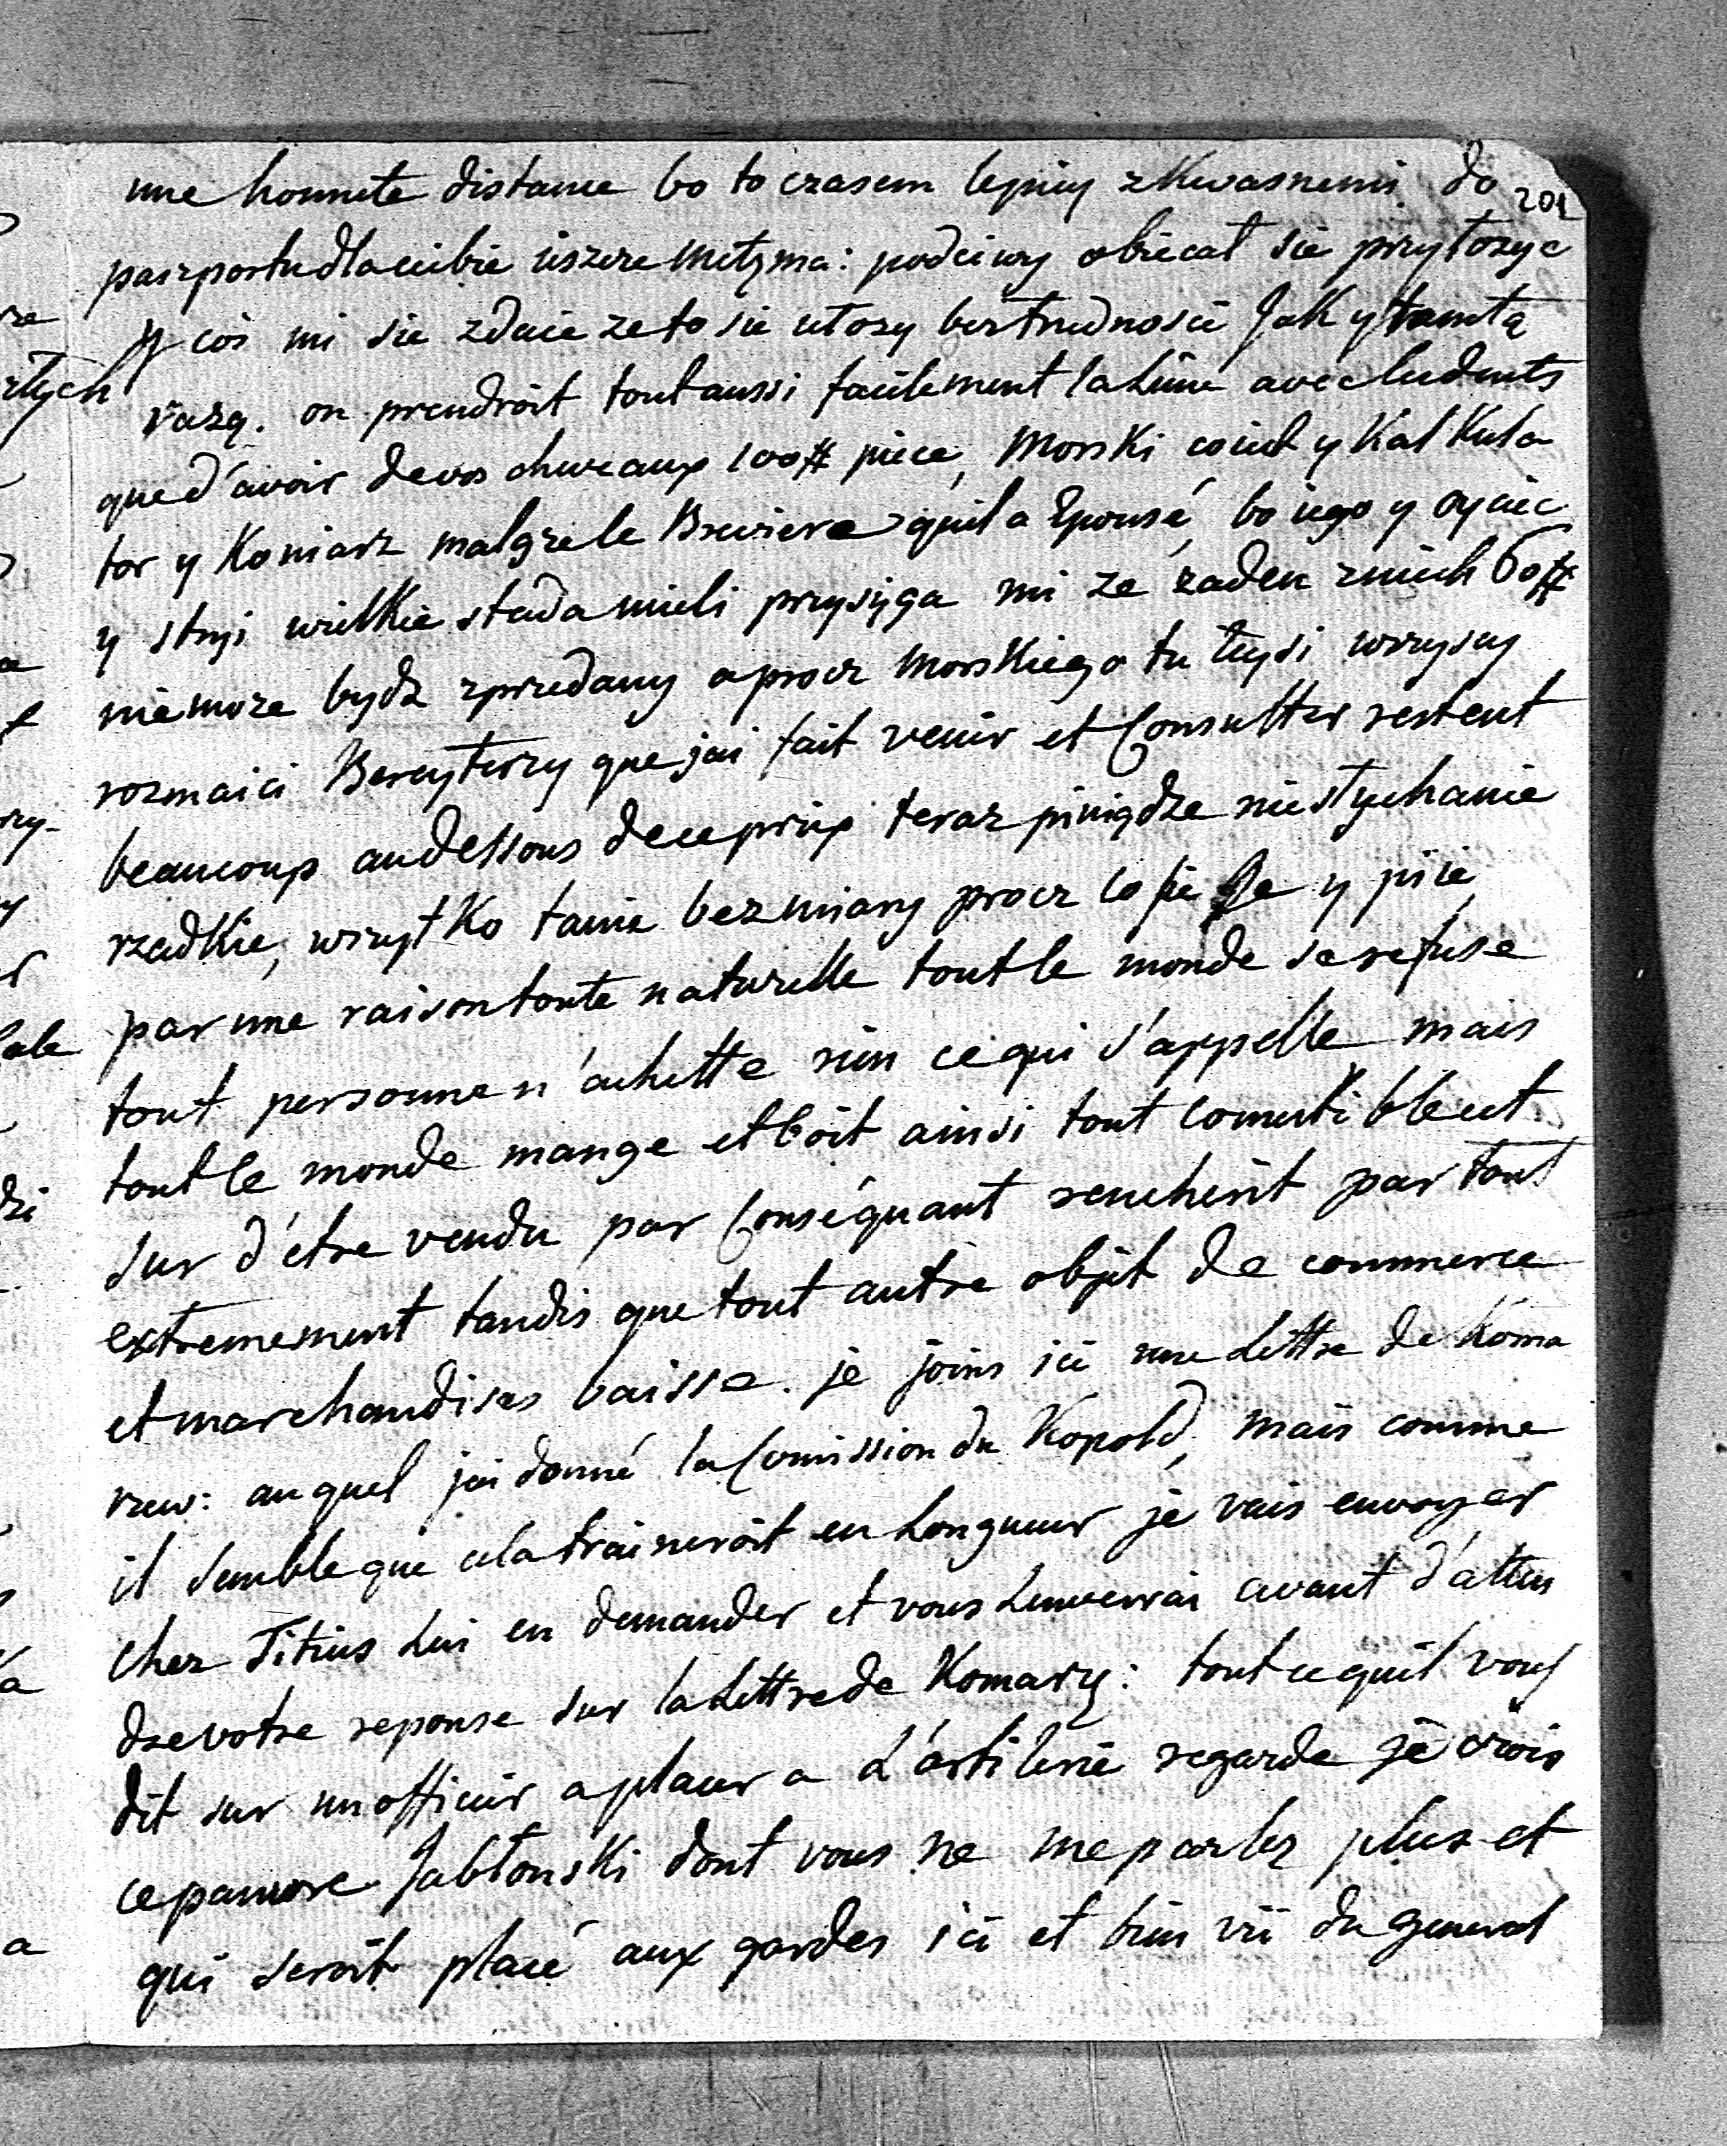 une honnete distance bo to czasem lepiey z kwasnemi do
201
paszportu dla ciebie iszcze metyma: podciwy obiecał sie przyłozyc
y coś mi sie zdaie ze to sie ułozy bez trudnosci Jak y tamtą
razą. on prendroit tout aussi facilement la Lune avec les dents
que d'avoir de vos chevaux 100# piece, Morski co iest y Kalkula
tor y Koniarz malgré le Breviere qu'il a Epousé, bo iego y oyciec
y stryi wielkie stada mieli przysięga mi ze żaden z nich 60#
nie moze bydz zprzedany a procz Morskiego tu łysi wszyscy
rozmaici Bereyterzy que jai fait venir et Consulter restent
beaucoup au dessous de ce prix teraz piniądze niesłychanie
rzadkie, wszystko tanie bez miary procz co sie Je y piie,
par une raison toute naturelle tout le monde se refuse
tout personne n'achette rien ce qui s'appelle mais
tout le monde mange et boit ainsi tout comestible est
sur d'étre vendu par Conséquant rencherit par tout
extremement tandis que tout autre objet de commerce
et marchandises baisse. je joins ici une Lettre de Koma
rzew: au quel jai donné la Comission du Kopold, mais comme
il semble que cela traineroit en Longueur je vais envoyer
chez Titius Lui en demander et vous Lenverrai avant d'atten
dre votre reponse sur la Lettre de Komarz: tout ce quil vous
dit sur un officier a placer a L'artilerie regarde je crois
ce pauvre Jabłonski dont vous ne me parlez plus et
qui seroit placé aux gardes ici et bien vü du General